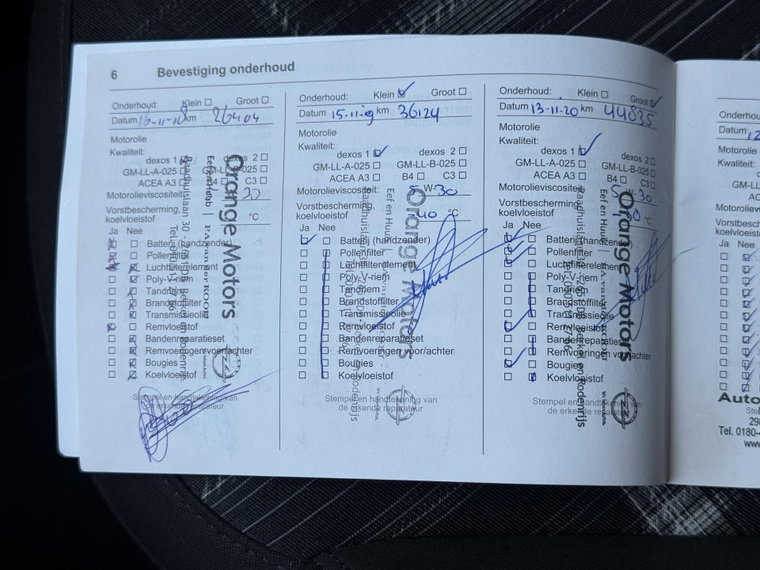 6 Bevestiging onderhoud
Onderhoud: Klein Groot
Datum 16-11-18 km 26404
Motorolie
Kwaliteit:
dexos 1 dexos 2
GM-LL-A-025
ACEA A3 B4 C3
Motorolieviscositeit: 30
Vorstbescherming,
koelvloeistof °C
Ja Nee
Batterij (handzender)
Pollenfilter
Luchtfilterelement
Poly-V-riem
Tandriem
Brandstoffilter
Transmissieolie
Remvloeistof
Bandenreparatieset
Remvoeringen voor/achter
Bougies
Koelvloeistof
Stempel en handtekening van
de erkende reparateur
Orange Motors
Onderhoud: Klein Groot
Datum 15-11-19 km 36124
Motorolie
Kwaliteit:
dexos 1 dexos 2
GM-LL-A-025 GM-LL-B-025
ACEA A3 B4 C3
Motorolieviscositeit: 5 W- 30
Vorstbescherming,
koelvloeistof 40 °C
Ja Nee
Batterij (handzender)
Pollenfilter
Luchtfilterelement
Poly-V-riem
Tandriem
Brandstoffilter
Transmissieolie
Remvloeistof
Bandenreparatieset
Remvoeringen voor/achter
Bougies
Koelvloeistof
Stempel en handtekening van
de erkende reparateur
Orange Motors
Onderhoud: Klein Groot
Datum 13-11-20 km 44835
Motorolie
Kwaliteit:
dexos 1 dexos 2
GM-LL-A-025 GM-LL-B-025
ACEA A3 B4 C3
Motorolieviscositeit: 5 W- 30
Vorstbescherming,
koelvloeistof °C
Ja Nee
Batterij (handzender)
Pollenfilter
Luchtfilterelement
Poly-V-riem
Tandriem
Brandstoffilter
Transmissieolie
Remvloeistof
Bandenreparatieset
Remvoeringen voor/achter
Bougies
Koelvloeistof
Stempel en handtekening van
de erkende reparateur
Orange Motors
Onderhou
Datum
Motorolie
Kwaliteit:
GM-LL
ACE
Motorolie
Vorstbesch
koelvloeist
Ja Nee
Auto
Tel. 0180-
www